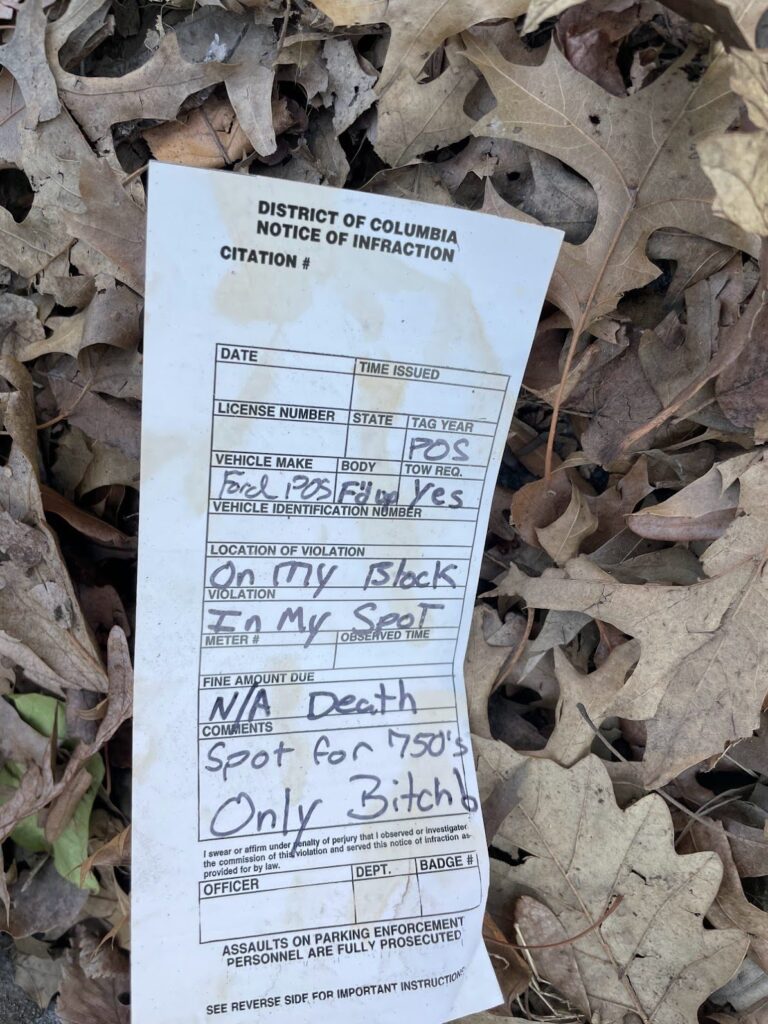 DISTRICT OF COLUMBIA
NOTICE OF INFRACTION
CITATION #
DATE TIME ISSUED
LICENSE NUMBER STATE TAG YEAR
POS
VEHICLE MAKE BODY TOW REQ.
Ford POS F'd up Yes
VEHICLE IDENTIFICATION NUMBER
LOCATION OF VIOLATION
On My Block
VIOLATION
In My Spot
METER # OBSERVED TIME
FINE AMOUNT DUE
N/A Death
COMMENTS
Spot for 750's
Only Bitch!
I swear or affirm under penalty of perjury that I observed or investigated
the commission of this violation and served this notice of infraction as
provided for by law.
OFFICER DEPT. BADGE #
ASSAULTS ON PARKING ENFORCEMENT
PERSONNEL ARE FULLY PROSECUTED
SEE REVERSE SIDE FOR IMPORTANT INSTRUCTIONS